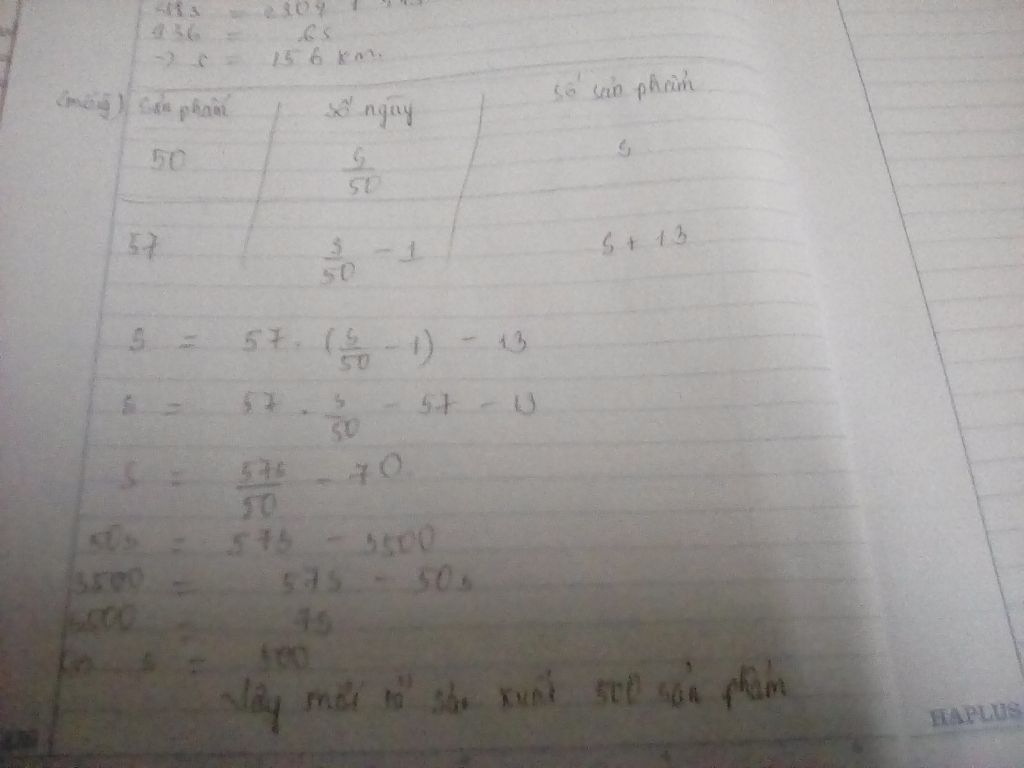 936 = 6s
-> s = 156 km
sản phẩm | số ngày | số sản phẩm
50 | s/50 | s
57 | s/50 - 1 | s + 13
s = 57 . (s/50 - 1) - 13
s = 57 . s/50 - 57 - 13
s = 57s/50 - 70
50s = 57s - 3500
3500 = 57s - 50s
3500 = 7s
s = 500
Vậy mỗi tổ sản xuất 500 sản phẩm
HAPLUS